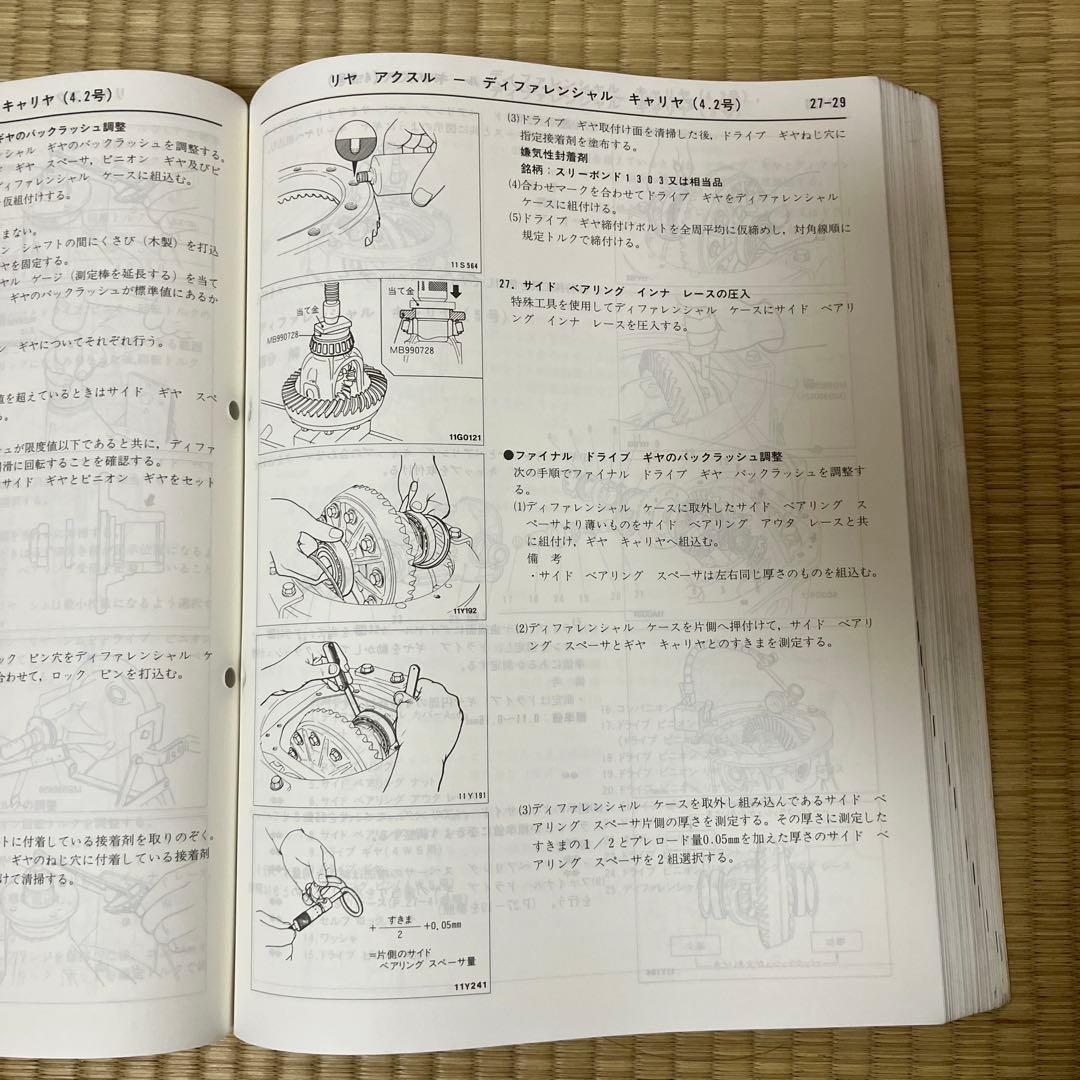 キャリヤ (4.2号)
ギヤのバックラッシュ調整
シャル ギヤのバックラッシュを調整する。
ギヤ スペーサ, ピニオン ギヤ及びピ
ディファレンシャル ケースに組込む。
仮組付けする。
まない。
ン シャフトの間にくさび (木製) を打込
ヤを固定する。
ヤル ゲージ (測定棒を延長する) を当て
ギヤのバックラッシュが標準値にあるか
ン ギヤについてそれぞれ行う。
値を超えているときはサイド ギヤ スペ
る。
シュが限度値以下であると共に, ディファ
円滑に回転することを確認する。
サイド ギヤとピニオン ギヤをセット
ック ピン穴をディファレンシャル ケ
合わせて, ロック ピンを打込む。
トに付着している接着剤を取りのぞく。
ギヤのねじ穴に付着している接着剤
けて清掃する。
リヤ アクスル ー ディファレンシャル キャリヤ (4.2号)
27-29
(3)ドライブ ギヤ取付け面を清掃した後, ドライブ ギヤねじ穴に
指定接着剤を塗布する。
嫌気性封着剤
銘柄:スリーボンド1303又は相当品
(4)合わせマークを合わせてドライブ ギヤをディファレンシャル
ケースに組付ける。
(5)ドライブ ギヤ締付けボルトを全周平均に仮締めし, 対角線順に
規定トルクで締付ける。
11S564
27. サイド ベアリング インナ レースの圧入
特殊工具を使用してディファレンシャル ケースにサイド ベアリ
ング インナ レースを圧入する。
当て金
当て金
MB990728
MB990728
11G0121
●ファイナル ドライブ ギヤのバックラッシュ調整
次の手順でファイナル ドライブ ギヤ バックラッシュを調整す
る。
(1)ディファレンシャル ケースに取外したサイド ベアリング ス
ペーサより薄いものをサイド ベアリング アウタ レースと共
に組付け, ギヤ キャリヤへ組込む。
備 考
・サイド ベアリング スペーサは左右同じ厚さのものを組込む。
11Y192
(2)ディファレンシャル ケースを片側へ押付けて, サイド ベアリ
ング スペーサとギヤ キャリヤとのすきまを測定する。
11Y191
(3)ディファレンシャル ケースを取外し組み込んであるサイド ベ
アリング スペーサ片側の厚さを測定する。その厚さに測定した
すきまの1/2とプレロード量0.05mmを加えた厚さのサイド ベ
アリング スペーサを2組選択する。
+ すきま/2 +0.05mm
=片側のサイド
ベアリング スペーサ量
11Y241